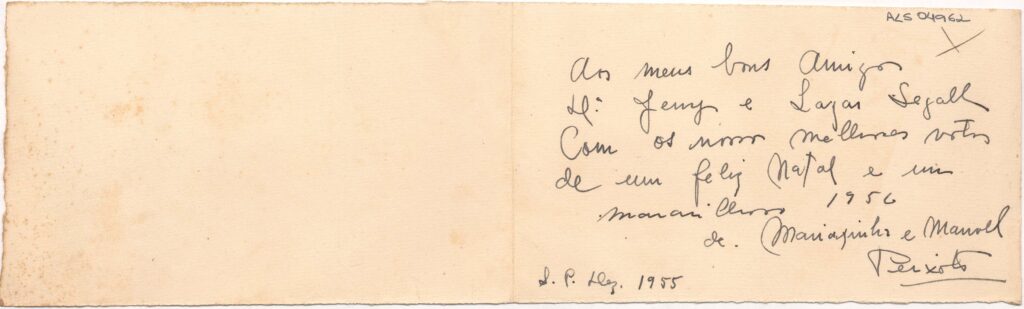 ALS 04962
Aos meus bons Amigos
D.ª Jenny e Lasar Segall
Com os nossos melhores votos
de um feliz Natal e um
maravilhoso 1956
de. Mariazinha e Manoel
Peixoto
S. P. Dez. 1955